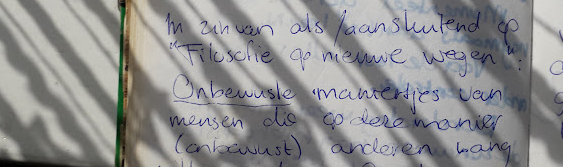 In zin van als / aansluitend op
"Filosofie op nieuwe wegen":
Onbewuste maniertjes van
mensen die op deze manier
(onbewust) anderen bang